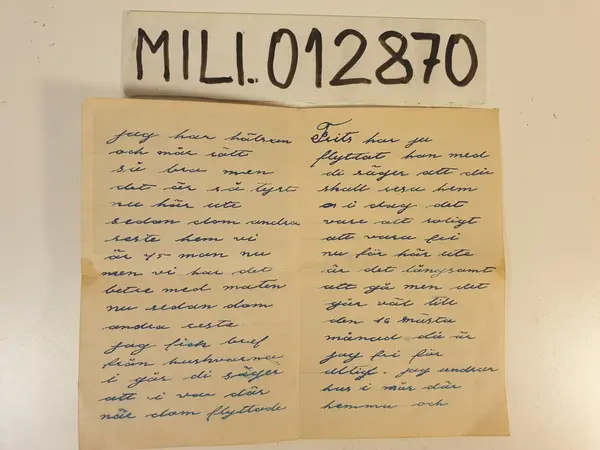 MILI.012870
jag har hälsan
och mår rätt
så bra men
det är så tyst
nu här ute
sedan dom andra
reste hem vi
är 45 man nu
men vi har det
betre med maten
nu sedan dom
andra reste
jag fick bref
från huskvarna
i går di säger
att i var där
när dom flyttade
Frits har ju
flyttat han med
di säger att die
skall resa hem
i dag det
vore alt roligt
att vara fri
nu för här ute
är det långsamt
att gå men det
går väl till
den 16 nästa
månad då är
jag fri för
alltig. jag undrar
hur i mår där
hemma och